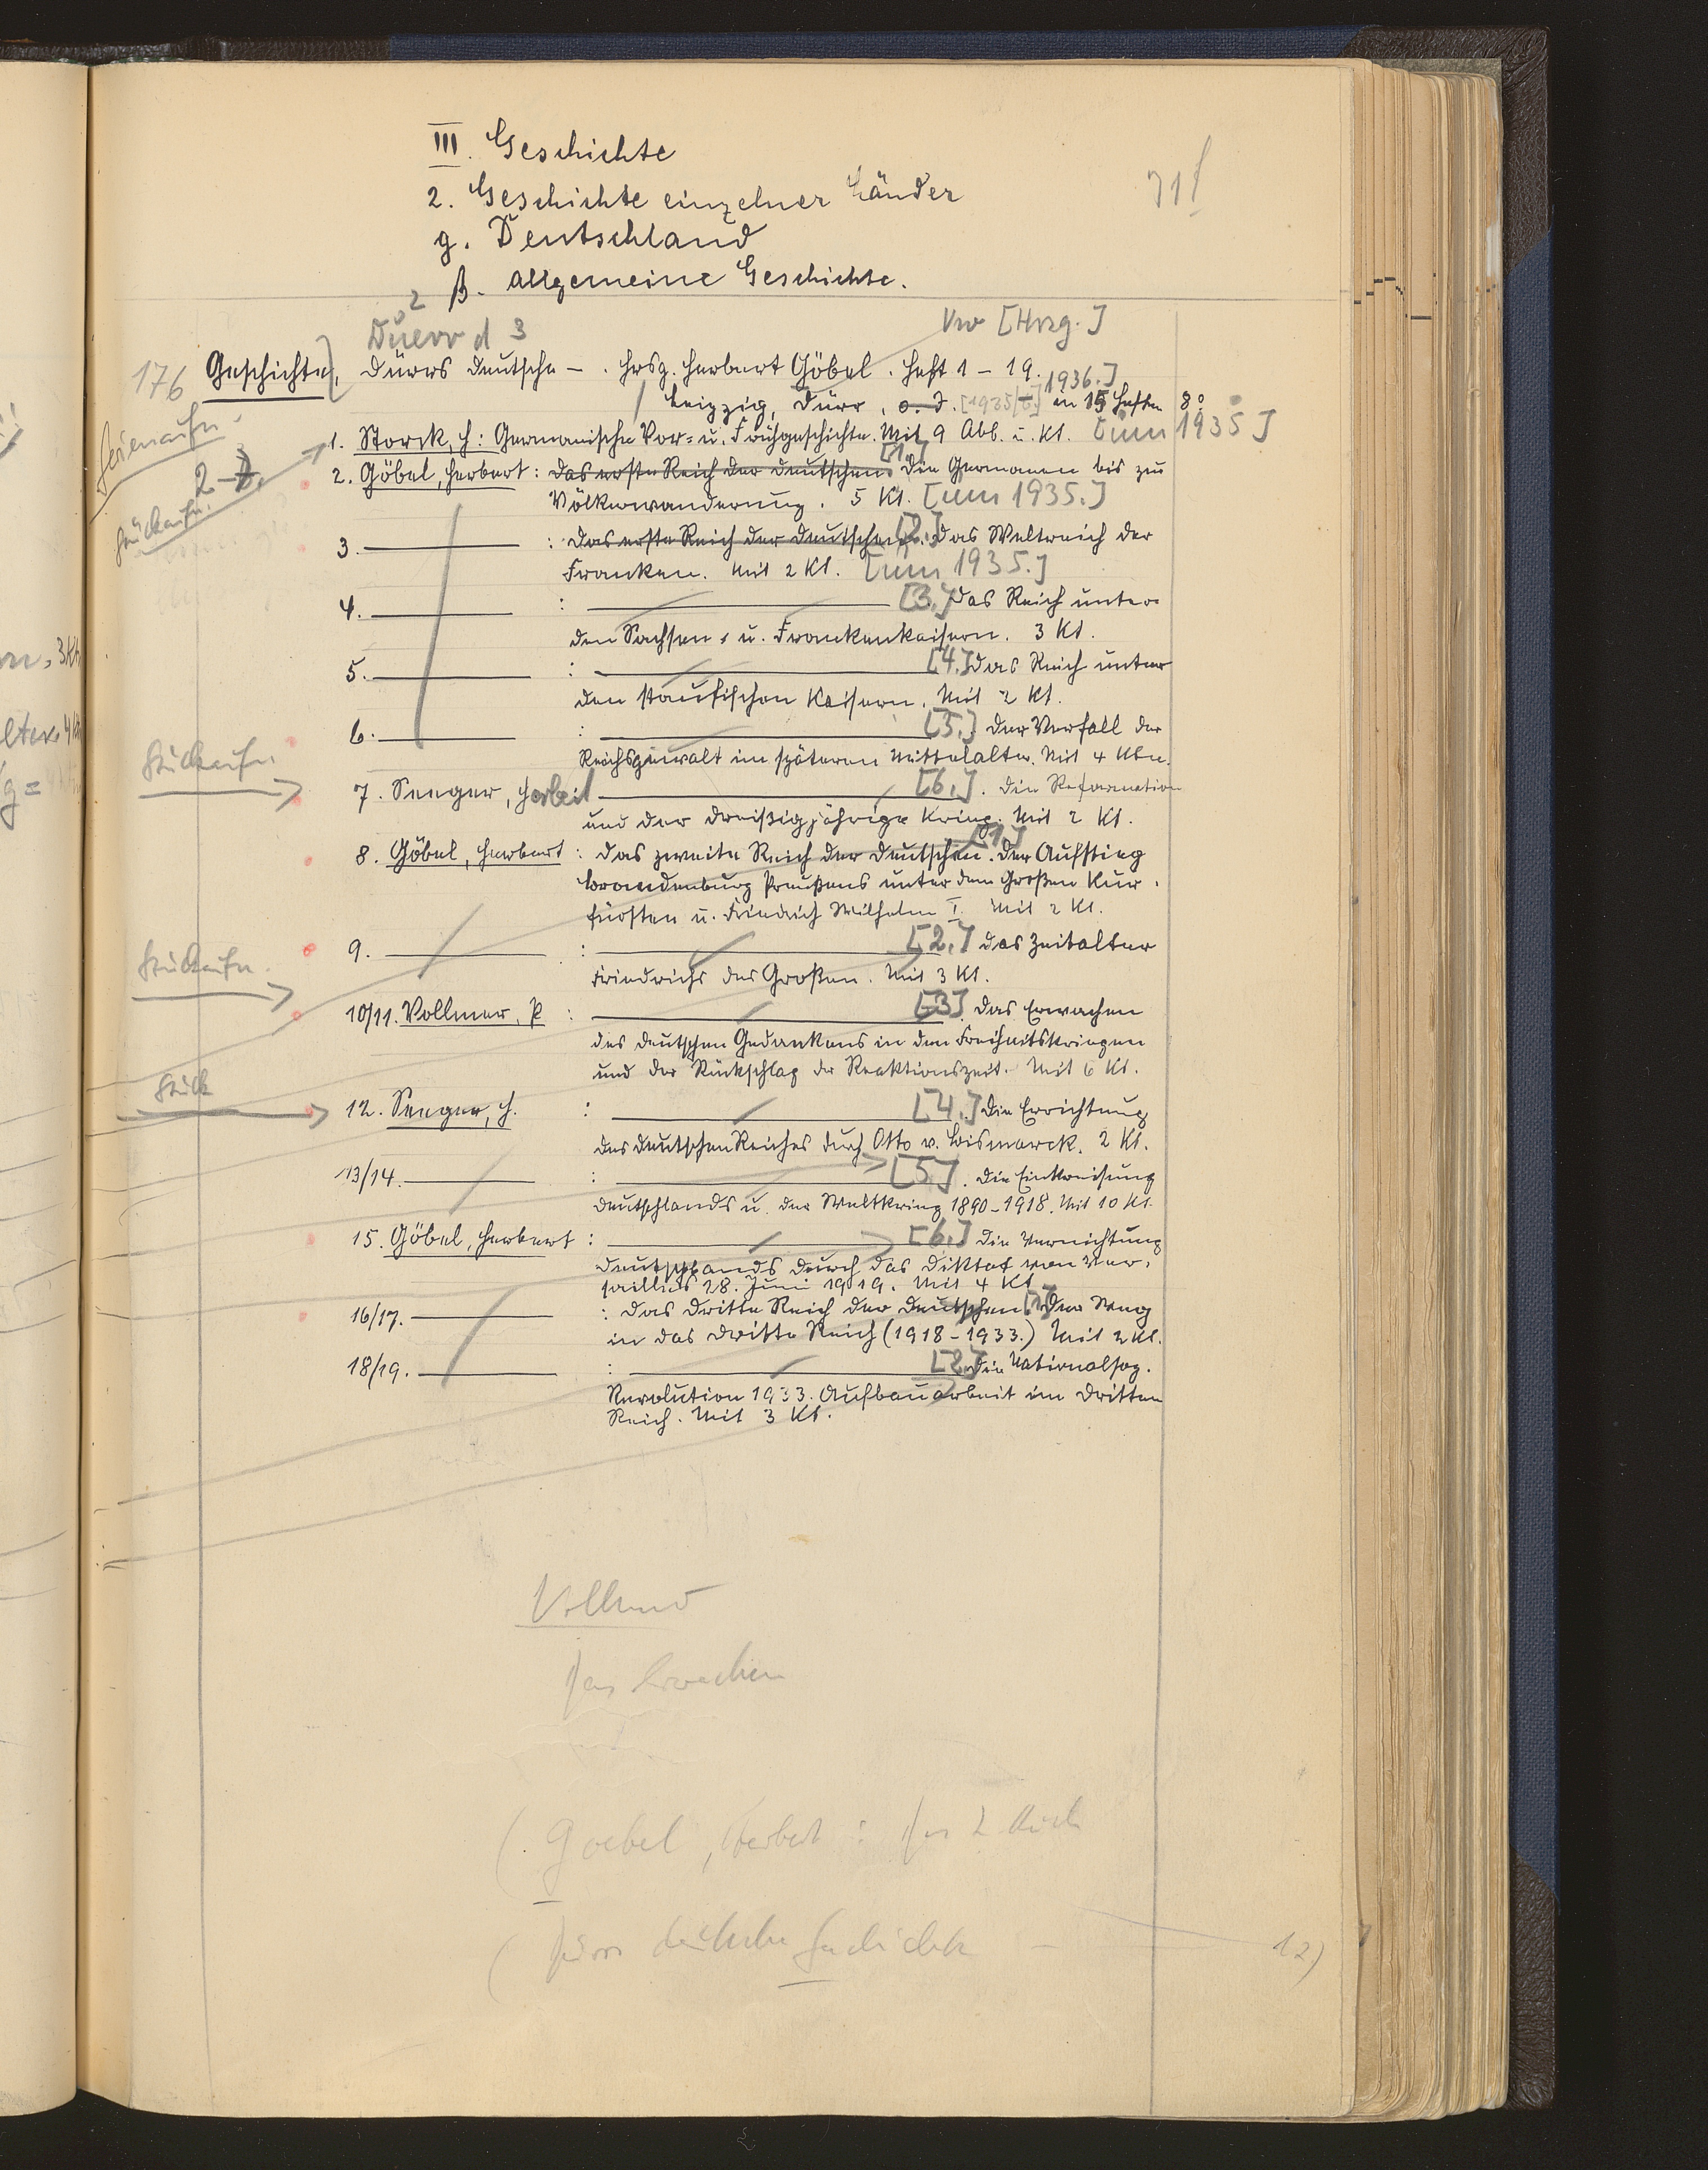 III. Geschichte
2. Geschichte einzelner Länder
g. Deutschland
β. Allgemeine Geschichte.
Duerr d 3
Vw [Hrsg.]
176 Geschichte, Dürrs Deutsche – . Hrsg. Herbert Göbel. Heft 1 – 19.
Leipzig, Dürr, o. J. [1935/ 1936.] in 15 Heften 8°
1. Storck, H: Germanische Vor- u. Frühgeschichte. Mit 9 Abb. u. Kt. [um 1935]
Serienaufn.
2. Göbel, Herbert: Das erste Reich der Deutschen [1.] Die Germanen bis zur
Völkerwanderung. 5 Kt. [um 1935.]
Stückaufn.
3. ——— : Das erste Reich der Deutschen. [2.] Das Weltreich der
Franken. Mit 2 Kt. [um 1935.]
4. ——— : ——— [3.] Das Reich unter
den Sachsen- u. Frankenkaisern. 3 Kt.
5. ——— : ——— [4.] Das Reich unter
den staufischen Kaisern. Mit 2 Kt.
6. ——— : ——— [5.] Der Verfall der
Reichsgewalt im späteren Mittelalter. Mit 4 Ktn.
Stückaufn.
7. Seeger, H ——— [6.]. Die Reformation
und der Dreißigjährige Krieg. Mit 2 Kt.
8. Göbel, Herbert: Das zweite Reich der Deutschen. [1.] Der Aufstieg
Brandenburg Preußens unter dem Großen Kur-
fürsten u. Friedrich Wilhelm I. Mit 2 Kt.
9. ——— : ——— [2.] Das Zeitalter
Friedrichs des Großen. Mit 3 Kt.
Stückaufn.
10/11. Vollmer, P : ——— [3]. Das Erwachen
des deutschen Gedankens in den Freiheitskriegen
und der Rückschlag der Reaktionszeit. Mit 6 Kt.
Stück
12. Seeger, H. : ——— [4.] Die Errichtung
des Deutschen Reiches durch Otto v. Bismarck. 2 Kt.
13/14. ——— : ——— [5]. Die Einkreisung
Deutschlands u. der Weltkrieg 1890–1918. Mit 10 Kt.
15. Göbel, Herbert : ——— [6.] Die Vernichtung
Deutschlands durch das Diktat von Ver-
sailles 28. Juni 1919. Mit 4 Kt.
16/17. ——— : Das Dritte Reich der Deutschen [1] Der Weg
in das Dritte Reich (1918–1933.) Mit 2 Kt.
18/19. ——— : ——— [2] Die Nationalsoz.
Revolution 1933. Aufbauarbeit im Dritten
Reich. Mit 3 Kt.
Das Erwachen
(Goebel, Herbert : Das 2. Reich
(Dürrs deutsche Geschichte – 12)